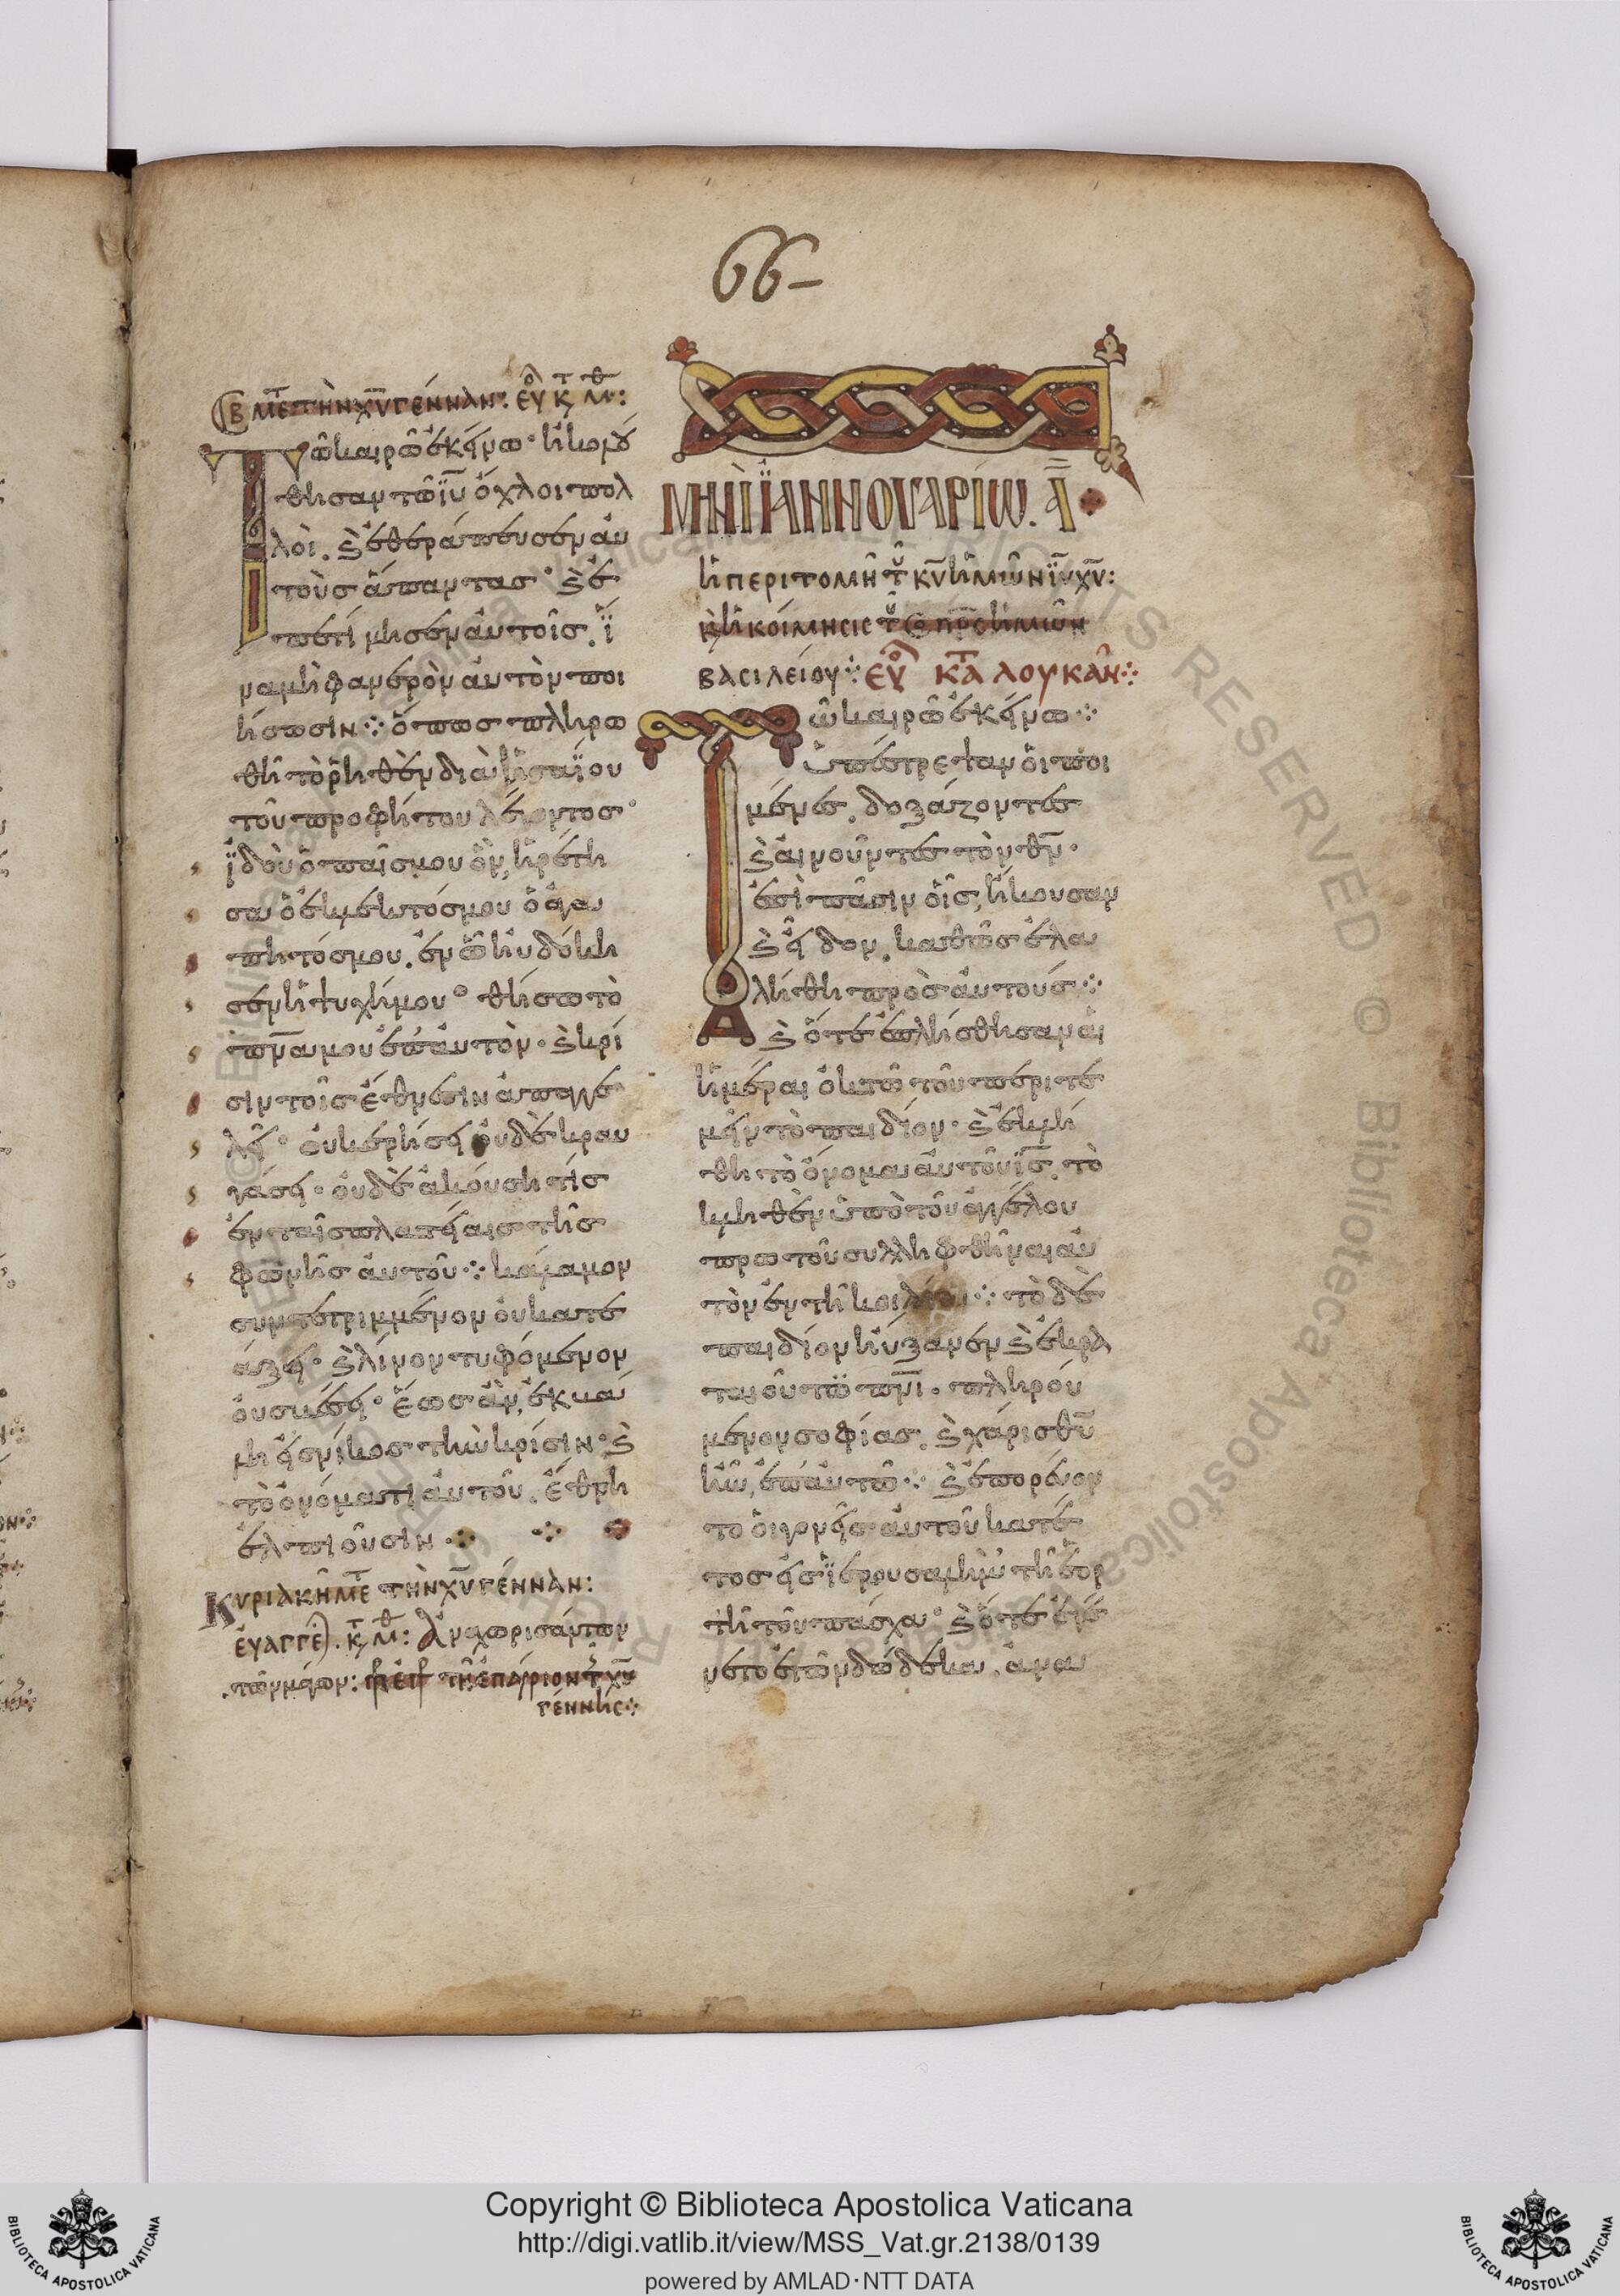 66-
ΣΑΒ ΜΕΤ ΤῊΝ ΧῩ ΓΈΝΝΑΝ: ΕΥ Κ Μ:
Τῶ καιρῶ ἐκείνω· ἠκολού
θησαν τῶ ἸῩ ὄχλοι πολ
λοὶ. καὶ ἐθεράπευσεν αὐ
τοὺς ἅπαντας· καὶ ἐ
πετίμησεν αὐτοῖς. ἵ
να μὴ φανερὸν αὐτὸν ποι
ήσωσιν⁘ ὅπως πληρω
θῆ τὸ ῥηθὲν διὰ ἡσαΐου
τοῦ προφήτου λέγοντος·
ἰδοὺ ὁ παῖς μου ὃν ἡρέτη
σα ὁ ἐκλεκτός μου ὁ ἀγα
πητός μου. ἐν ὧ ηὐδόκη
σεν ἡ ψυχή μου· θήσω τὸ
πν̅α μου ἐπ' αὐτὸν· καὶ κρί
σιν τοῖς ἔθνεσιν ἀπαγγε
λεῖ· οὐκ ἐρήσει οὐδὲ κραυ
γάσει· οὐδὲ ἀκούση τίς
ἐν ταῖς πλατείαις τῆς
φωνῆς αὐτοῦ⁘ κάλαμον
συντετριμμένον οὐ κατε
άξει· καὶ λίνον τυφόμενον
οὐ σβέσει· ἕως ἂν ἐκβάλ
λη εἰς νίκος τὴν κρίσιν· καὶ
τὸ ὀνόματι αὐτοῦ. ἔθνη
ἐλπιοῦσιν⁘
ΚΥΡΙΑΚῊ ΜΕΤ ΤῊΝ ΧῩ ΓΈΝΝΑΝ:
ΕΥΑΓΓΕ. Κ Μ: Ἀναχωρισάντων
τῶν μάγων: ΤΗ ΕΠΑΥΡΙΟΝ Τ ΧῩ
ΓΈΝΝΗΣ⁘
ΜΗΝῚ ἸΑΝΝΟΥΑΡΊΩ. Α
Ἡ ΠΕΡΙΤΟΜῊ Τ Κ̅Υ̅ ἩΜΩ͂Ν Ἰ̅Υ̅ Χ̅Υ̅:
Κ Ἡ ΚΟΊΜΗΣΙΣ Τ Ο Π̅Ρ̅Σ ἩΜΩ͂Ν
ΒΑΣΙΛΕΊΟΥ⁘ ΕΥ ΚΑΤΑ ΛΟΥΚΑΝ⁘
Τῶ καιρῶ ἐκείνω⁘
ὑπέστρεψαν οἱ ποι
μένες. δοξάζοντες
καὶ αἰνοῦντες τὸν θ̅ν̅·
ἐπὶ πᾶσιν οἷς ἤκουσαν
καὶ εἶδον. καθὼς ἐλα
λήθη πρὸς αὐτούς⁘
Καὶ ὅτε ἐπλήσθησαν αἱ
ἡμέραι ὀκτῶ τοῦ περιτε
μεῖν τὸ παιδίον· καὶ ἐκλή
θη τὸ ὄνομα αὐτοῦ ι̅ς̅. τὸ
κληθὲν ὑπὸ τοῦ ἀγγέλου
πρω τοῦ συλληφθῆναι αὐ
τὸν ἐν τῆ κοιλία⁘ τὸ δὲ
παιδίον ηὔξανεν καὶ ἐκρα
ταιοῦτο πν̅ι̅. πληρού
μενον σοφίας. καὶ χάρις θ̅υ̅
ἦν ἐπ' αὐτῶ⁘ καὶ ἐπορεύον
το οἱ γονεῖς αὐτοῦ κατέ
τος εἰς ἱερουσαλὴμ τῆ ἑορ
τῆ τοῦ πάσχα· καὶ ὅτε ἐγέ
νετο ἐτῶν δώδεκα. ἀνα
Copyright © Biblioteca Apostolica Vaticana
http://digi.vatlib.it/view/MSS_Vat.gr.2138/0139
powered by AMLAD·NTT DATA